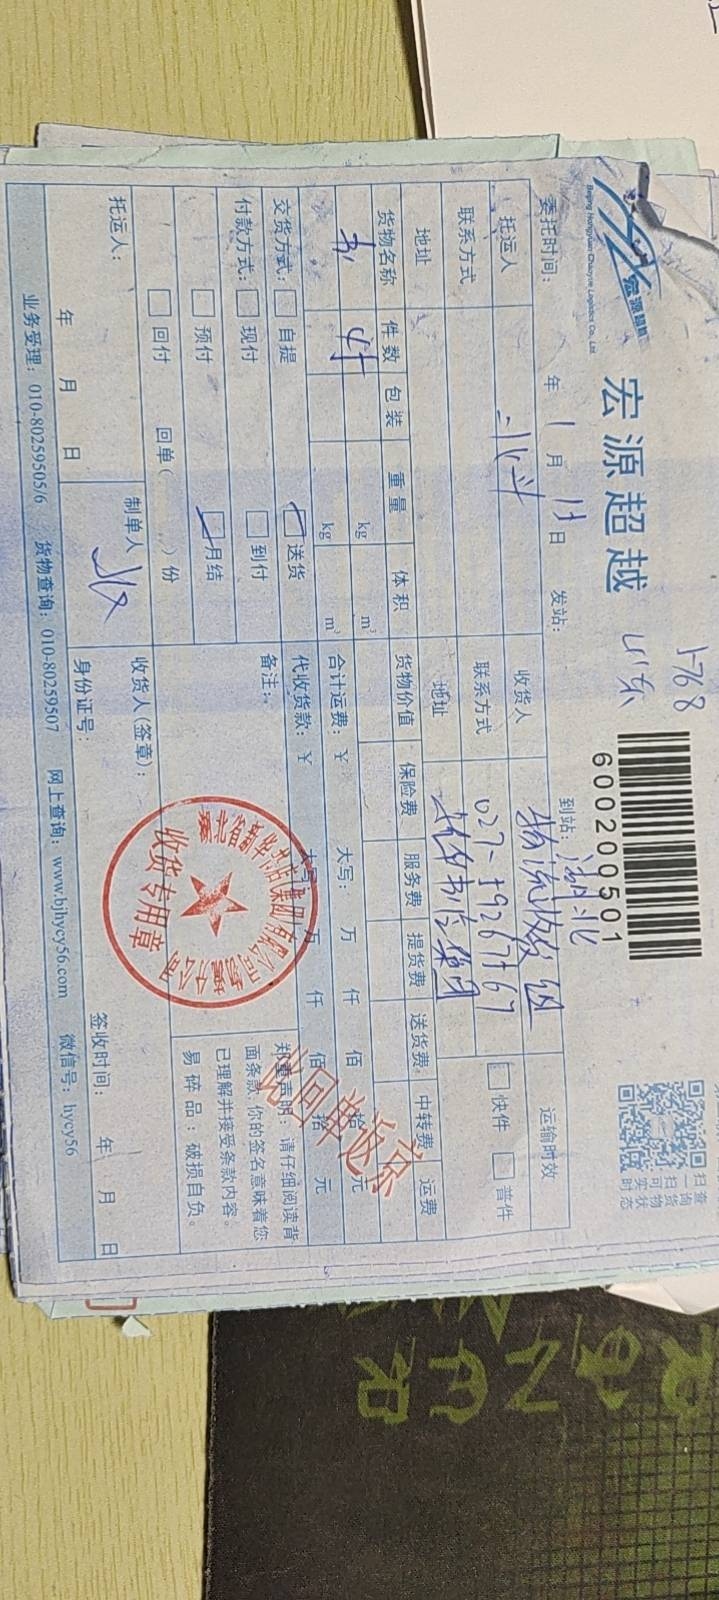 宏源超越
Beijing Hongyuan Chaoyue Logistics Co., Ltd.
宏源超越
山东
1-768
600200501
扫一扫可实时
查询货物状态
委托时间: 年 1 月 日 发站: 到站: 湖北
托运人
收货人 物流收发组
运输时效
联系方式
联系方式 027-59267567
快件 普件
地址
地址 新华书店集团
货物名称 件数 包装 重量 体积 货物价值 保险费 服务费 提货费 送货费 中转费 运费
书 kg m³
kg m³
合计运费: ¥ 大写: 万 仟 佰 拾 元
代收货款: ¥ 大写: 万 仟 佰 拾 元
交货方式: 自提 送货
付款方式: 现付 到付
预付 月结
回付 回单( )份
备注:
郑重声明: 请仔细阅读背
面条款, 你的签名意味着您
已理解并接受条款内容。
易碎品: 破损自负。
原回单返京
湖北省新华书店(集团)有限公司
分公司
收货专用章
托运人:
年 月 日
制单人
收货人(签章):
身份证号:
签收时间: 年 月 日
业务受理: 010-80259505/6 货物查询: 010-80259507 网上查询: www.bjhycy56.com 微信号: hycy56